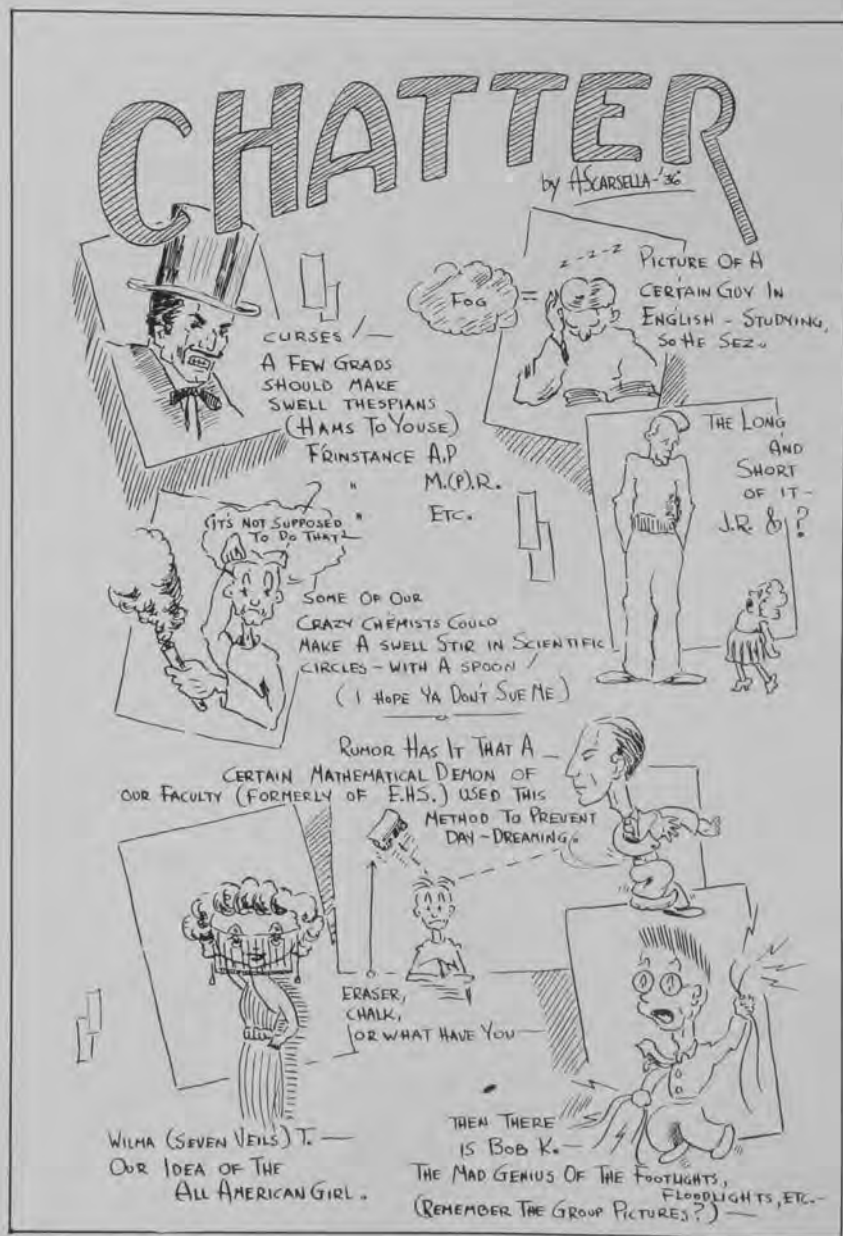 CHATTER
by AScarsella-'36
CURSES!—
A FEW GRADS
SHOULD MAKE
SWELL THESPIANS
(HAMS TO YOUSE)
FRINSTANCE A.P
" M.(P).R.
" ETC.
FOG =
z-z-z
PICTURE OF A
CERTAIN GUY IN
ENGLISH - STUDYING,
SO HE SEZ.
THE LONG
AND
SHORT
OF IT-
J.R. & ?
IT'S NOT SUPPOSED
TO DO THAT
SOME OF OUR
CRAZY CHEMISTS COULD
MAKE A SWELL STIR IN SCIENTIFIC
CIRCLES - WITH A SPOON!
(I HOPE YA DON'T SUE ME)
RUMOR HAS IT THAT A
CERTAIN MATHEMATICAL DEMON OF
OUR FACULTY (FORMERLY OF E.H.S.) USED THIS
METHOD TO PREVENT
DAY-DREAMING.
ERASER,
CHALK,
OR WHAT HAVE YOU—
WILMA (SEVEN VEILS) T. —
OUR IDEA OF THE
ALL AMERICAN GIRL.
THEN THERE
IS BOB K.—
THE MAD GENIUS OF THE FOOTLIGHTS,
FLOODLIGHTS, ETC.-
(REMEMBER THE GROUP PICTURES?)—